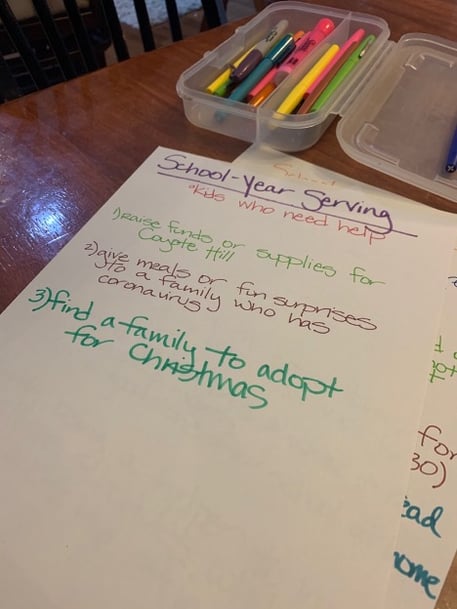 School
School-Year Serving
*Kids who need help
1) raise funds or supplies for
Coyote Hill
2) give meals or fun surprises
to a family who has
coronavirus
3) find a family to adopt
for Christmas
for
30)
ead
ome